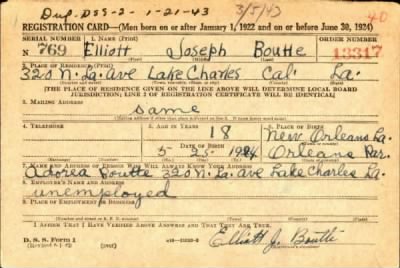 Dup. DSS-2- 1-21-43
3/5/43
40
REGISTRATION CARD—(Men born on or after January 1, 1922 and on or before June 30, 1924)
SERIAL NUMBER
1. NAME (Print)
ORDER NUMBER
N 769 Elliott Joseph Boutte
13317
(First) (Middle) (Last)
2. PLACE OF RESIDENCE (Print)
320 N. La. ave Lake Charles Cal. La.
(Number and street) (Town, township, village, or city) (County) (State)
[THE PLACE OF RESIDENCE GIVEN ON THE LINE ABOVE WILL DETERMINE LOCAL BOARD
JURISDICTION; LINE 2 OF REGISTRATION CERTIFICATE WILL BE IDENTICAL]
3. MAILING ADDRESS
Same
4. TELEPHONE
5. AGE IN YEARS
6. PLACE OF BIRTH
18
New Orleans La.
DATE OF BIRTH
(Town or county)
5 25 1924 Orleans Par.
(Exchange) (Number) (Mo.) (Day) (Yr.) (State or country)
7. NAME AND ADDRESS OF PERSON WHO WILL ALWAYS KNOW YOUR ADDRESS
Adorea Boutte 320 N. La ave Lake Charles La
8. EMPLOYER'S NAME AND ADDRESS
unemployed
9. PLACE OF EMPLOYMENT OR BUSINESS
(Number and street or R. F. D. number) (Town) (County) (State)
I AFFIRM THAT I HAVE VERIFIED ABOVE ANSWERS AND THAT THEY ARE TRUE.
D. S. S. Form 1
Elliott J. Boutte